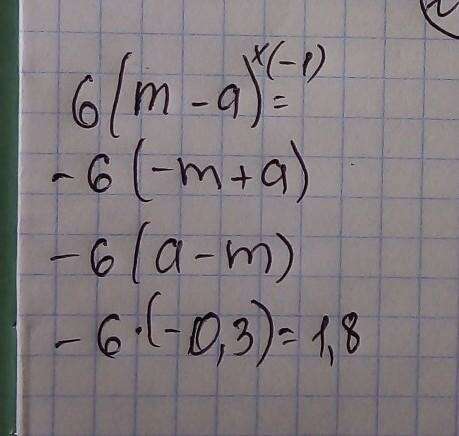 6(m - a)^x(-1) =
- 6 (-m + a)
- 6 (a - m)
- 6 · (- 0,3) = 1,8